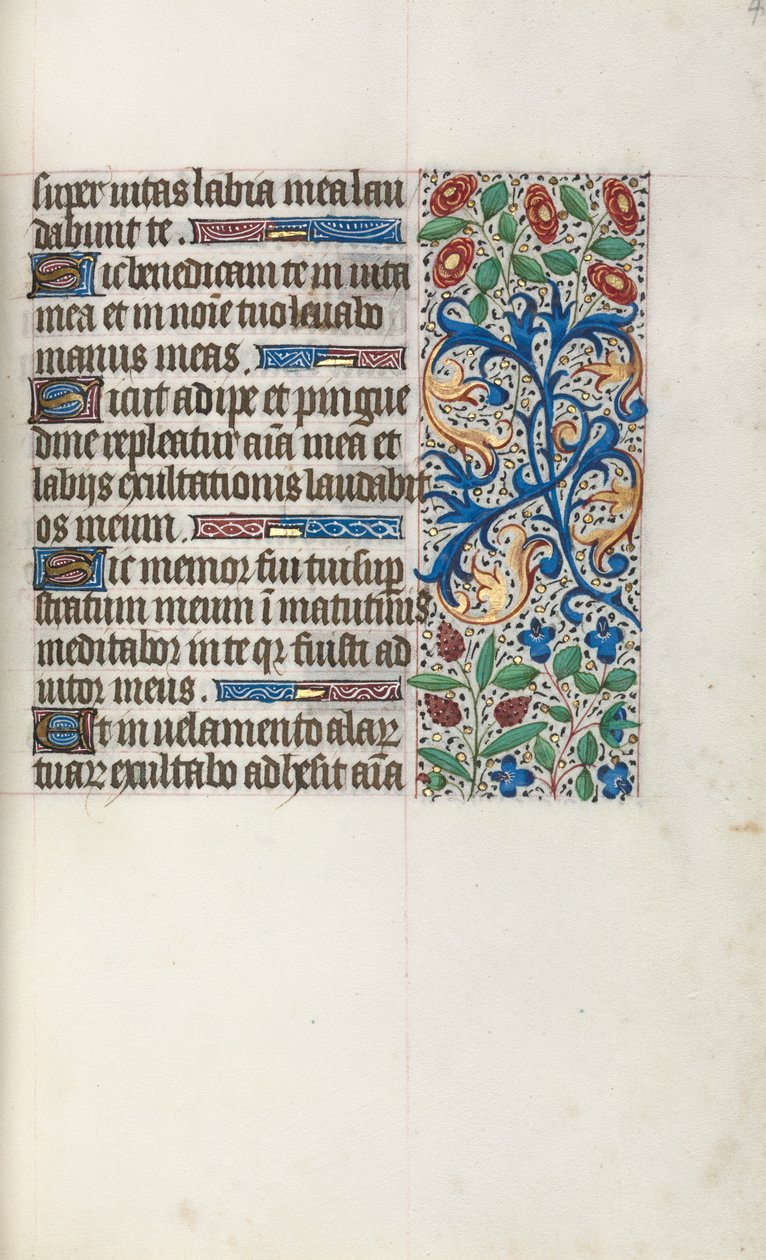 super uitas labia mea lau
dabunt te.
Sic benedicam te in uita
mea et in noīe tuo leuabo
manus meas.
Sicut adipe et pingue
dine repleatur aīa mea et
labijs exultationis laudabit
os meum.
Sic memor fui tui sup
stratum meum ī matutinis
meditabor in te qꝛ fuisti ad
iutor meus.
Et in uelamento alaꝝ
tuaꝝ exultabo adhesit aīa